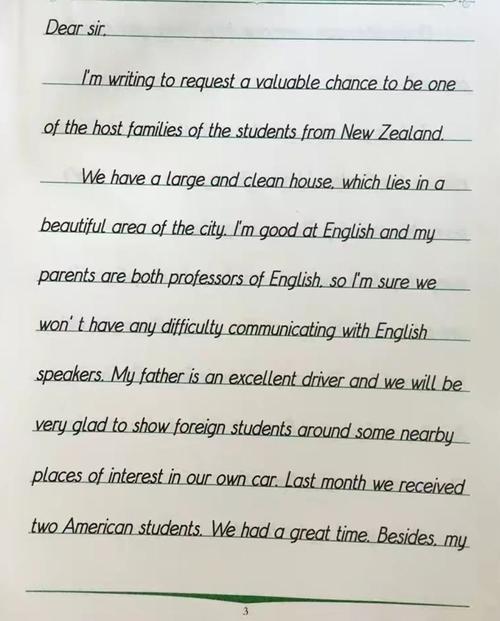 Dear sir,
I'm writing to request a valuable chance to be one
of the host families of the students from New Zealand.
We have a large and clean house, which lies in a
beautiful area of the city. I'm good at English and my
parents are both professors of English, so I'm sure we
won't have any difficulty communicating with English
speakers. My father is an excellent driver and we will be
very glad to show foreign students around some nearby
places of interest in our own car. Last month we received
two American students. We had a great time. Besides, my
3